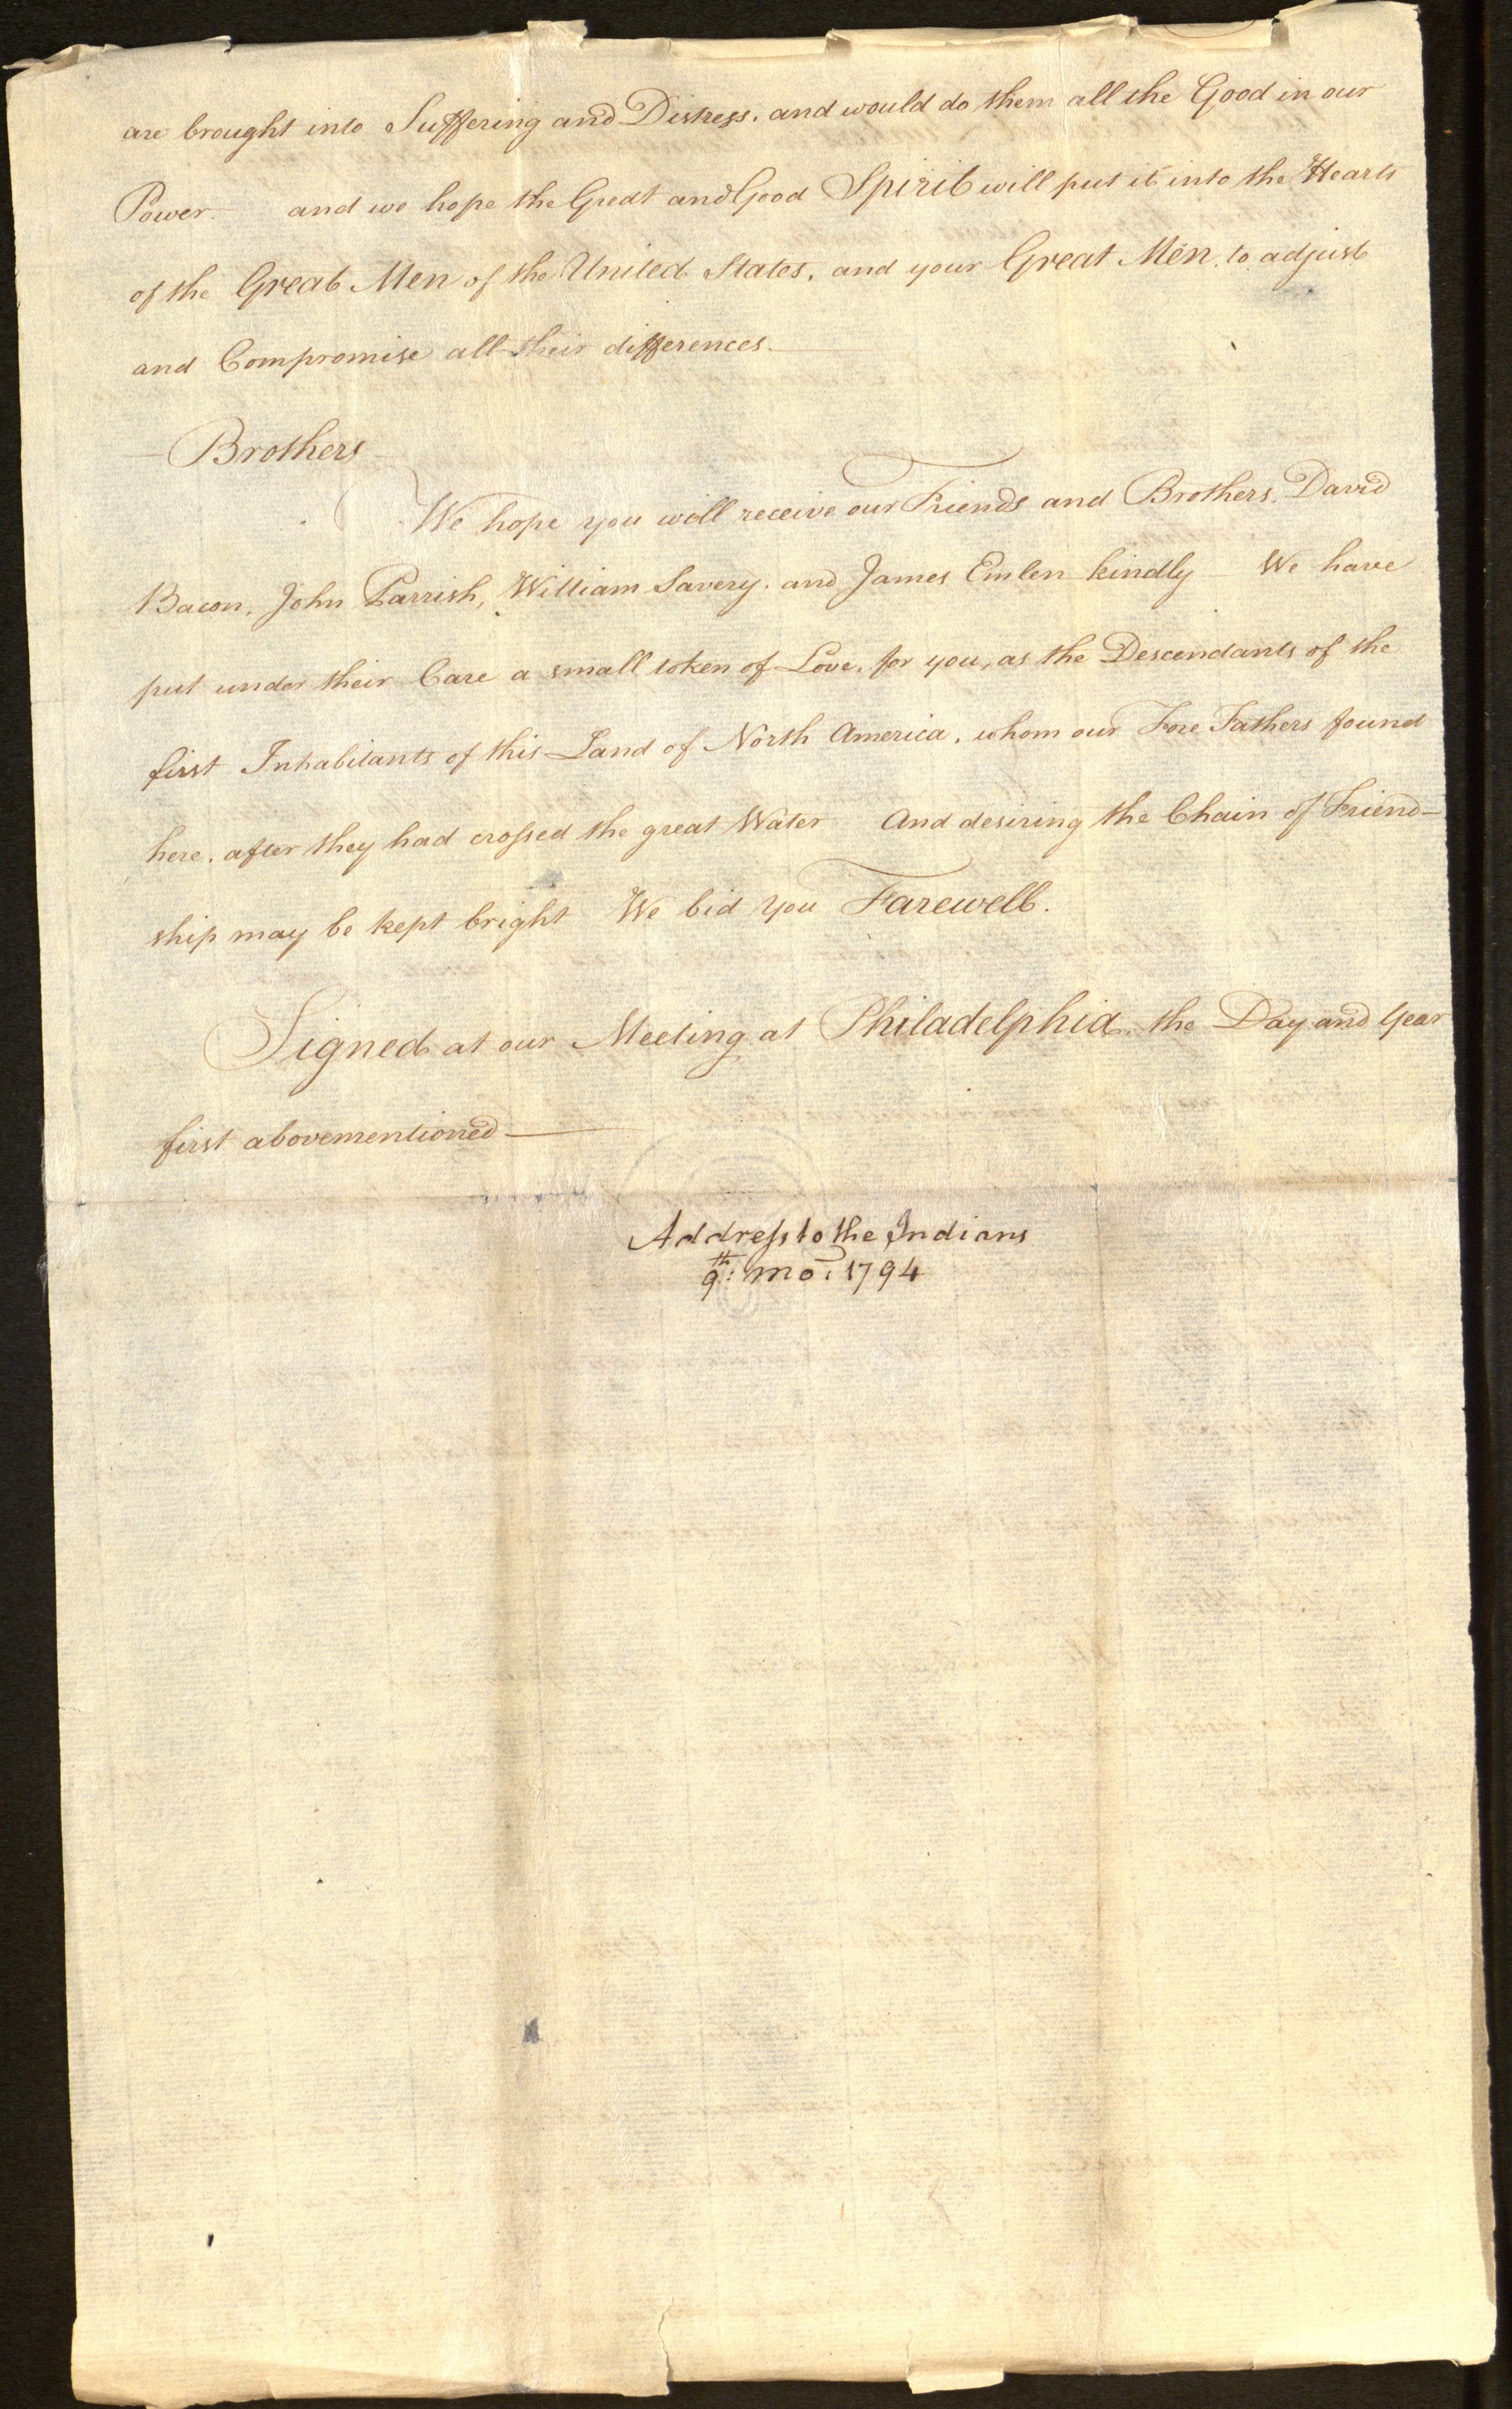 are brought into Suffering and Distress. and would do them all the Good in our
Power. and we hope the Great and Good Spirit will put it into the Hearts
of the Great Men of the United States, and your Great Men. to adjust
and Compromise all their differences. —
— Brothers —
We hope you will receive our Friends and Brothers. David
Bacon, John Parrish, William Savery. and James Emlen kindly We have
put under their Care a small token of Love. for you, as the Descendants of the
first Inhabitants of this Land of North America. whom our Fore Fathers found
here. after they had croſsed the great Water And desiring the Chain of Friend-
ship may be kept bright We bid you Farewell.
Signed at our Meeting at Philadelphia. the Day and Year
first abovementioned —
Addreſs to the Indians
9th: mo: 1794